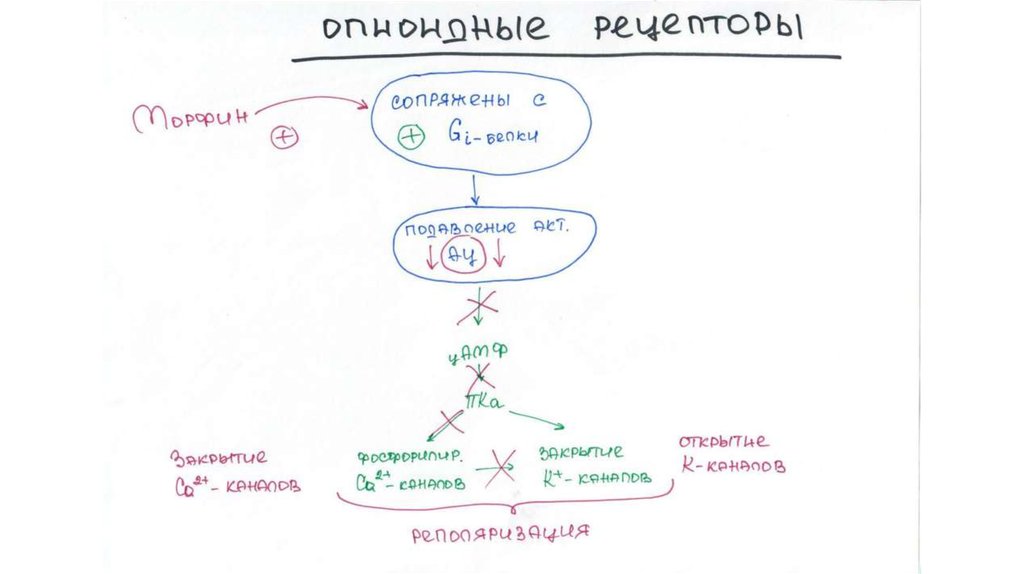 ОПИОИДНЫЕ РЕЦЕПТОРЫ
МОРФИН
+
СОПРЯЖЕНЫ С
+ Gi-БЕЛКИ
ПОДАВЛЕНИЕ АКТ.
↓ АЦ ↓
цАМФ
ПКа
ЗАКРЫТИЕ
Ca2+-КАНАЛОВ
ФОСФОРИЛИР.
Ca2+-КАНАЛОВ
ЗАКРЫТИЕ
K+-КАНАЛОВ
ОТКРЫТИЕ
K-КАНАЛОВ
РЕПОЛЯРИЗАЦИЯ